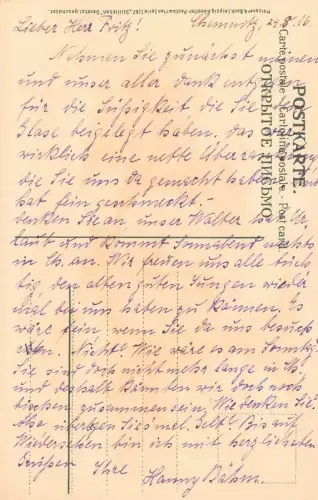 Lieber Herr Fritz! Chemnitz, 24.8.16
Nehmen Sie zunächst meinen
und unser aller Dank entgegen
für die Süßigkeit die Sie dem
Glase beigelegt haben. Das war
wirklich eine nette Überraschung
die Sie uns da gemacht haben und
hat fein geschmeckt. –
denken Sie an unser Walter hat Ur-
laub und kommt Sonnabend nachts
in Ch. an. Wir freuen uns alle tüch-
tig den alten guten Jungen wieder
mal bei uns haben zu können. Es
wäre fein wenn Sie da uns besuch-
ten. Nicht? Wie wäre es am Sonntag?
Sie sind doch nicht mehr lange in Ch.
und deshalb könnten wir doch noch
bischen zusammen sein. Wie denken Sie?
Also überlegen Sie's mal. Gelt? Bis auf
Wiedersehen bin ich mit herzlichsten
Grüßen Ihre
Hanny Böhm.
POSTKARTE.
Carte postale - Cartolina postale - Post card
ОТКРЫТОЕ ПИСЬМО